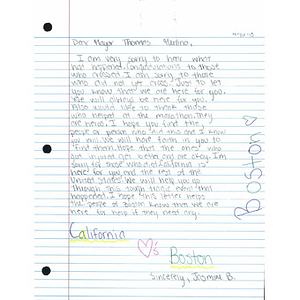 Dear Mayor Thomas Menino,
I am very sorry to hear what
had happened. Congratulations to those
who crossed I am sorry to those
who did not get cross. Just to let
you know that we are here for you.
We will always be here for you.
Also would like to thank those
who helped at the marathon. They
are heros. I hope you find the
people or person who did this and I know
you will. We will have faith in you to
find them. Hope that the ones who
got injured get better and are okay. I'm
sorry for those who died. California is
here for you and the rest of the
United States. We will help you go
through this tough time
happended. I hope this letter helps
the people of Boston know that we are
here for help if they need any.
California
♡'s
Boston
Sincerely, Jasmine B.
Boston ♡